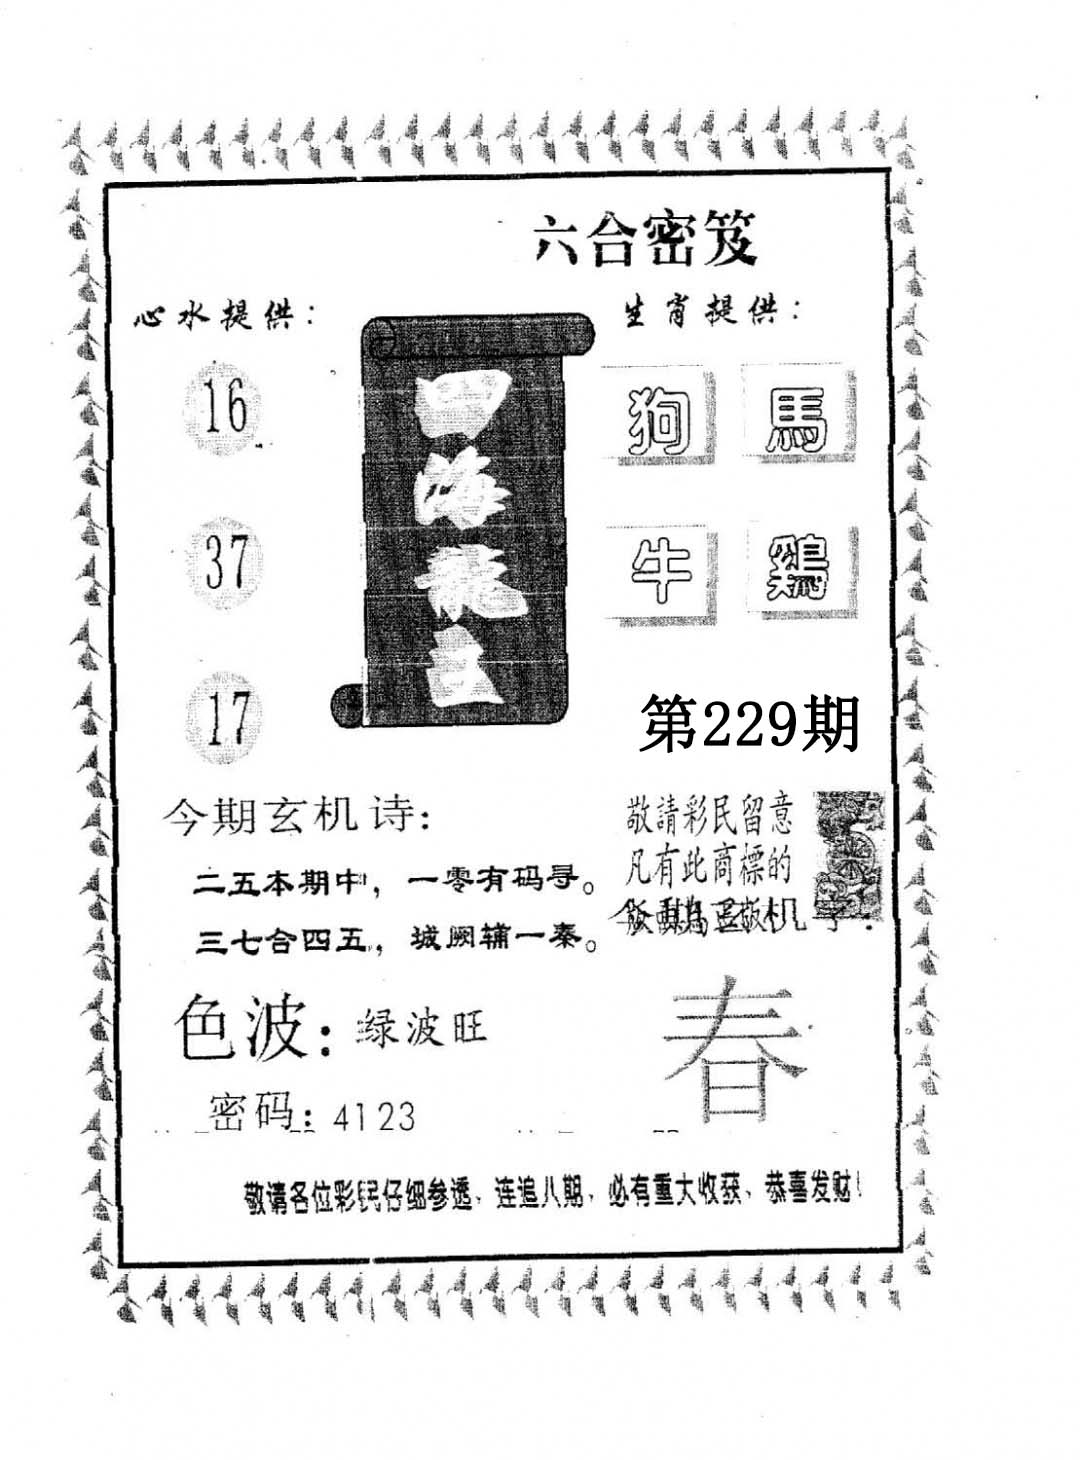 六合密笈
心水提供：
生肖提供：
16
37
17
四海龍王
狗 馬
牛 鷄
第229期
今期玄机诗：
二五本期中，一零有码寻。
三七合四五，城阙辅一秦。
敬請彩民留意
凡有此商標的
色波：绿波旺
春
密码：4123
敬请各位彩民仔细参透、连追八期、必有重大收获、恭喜发财！